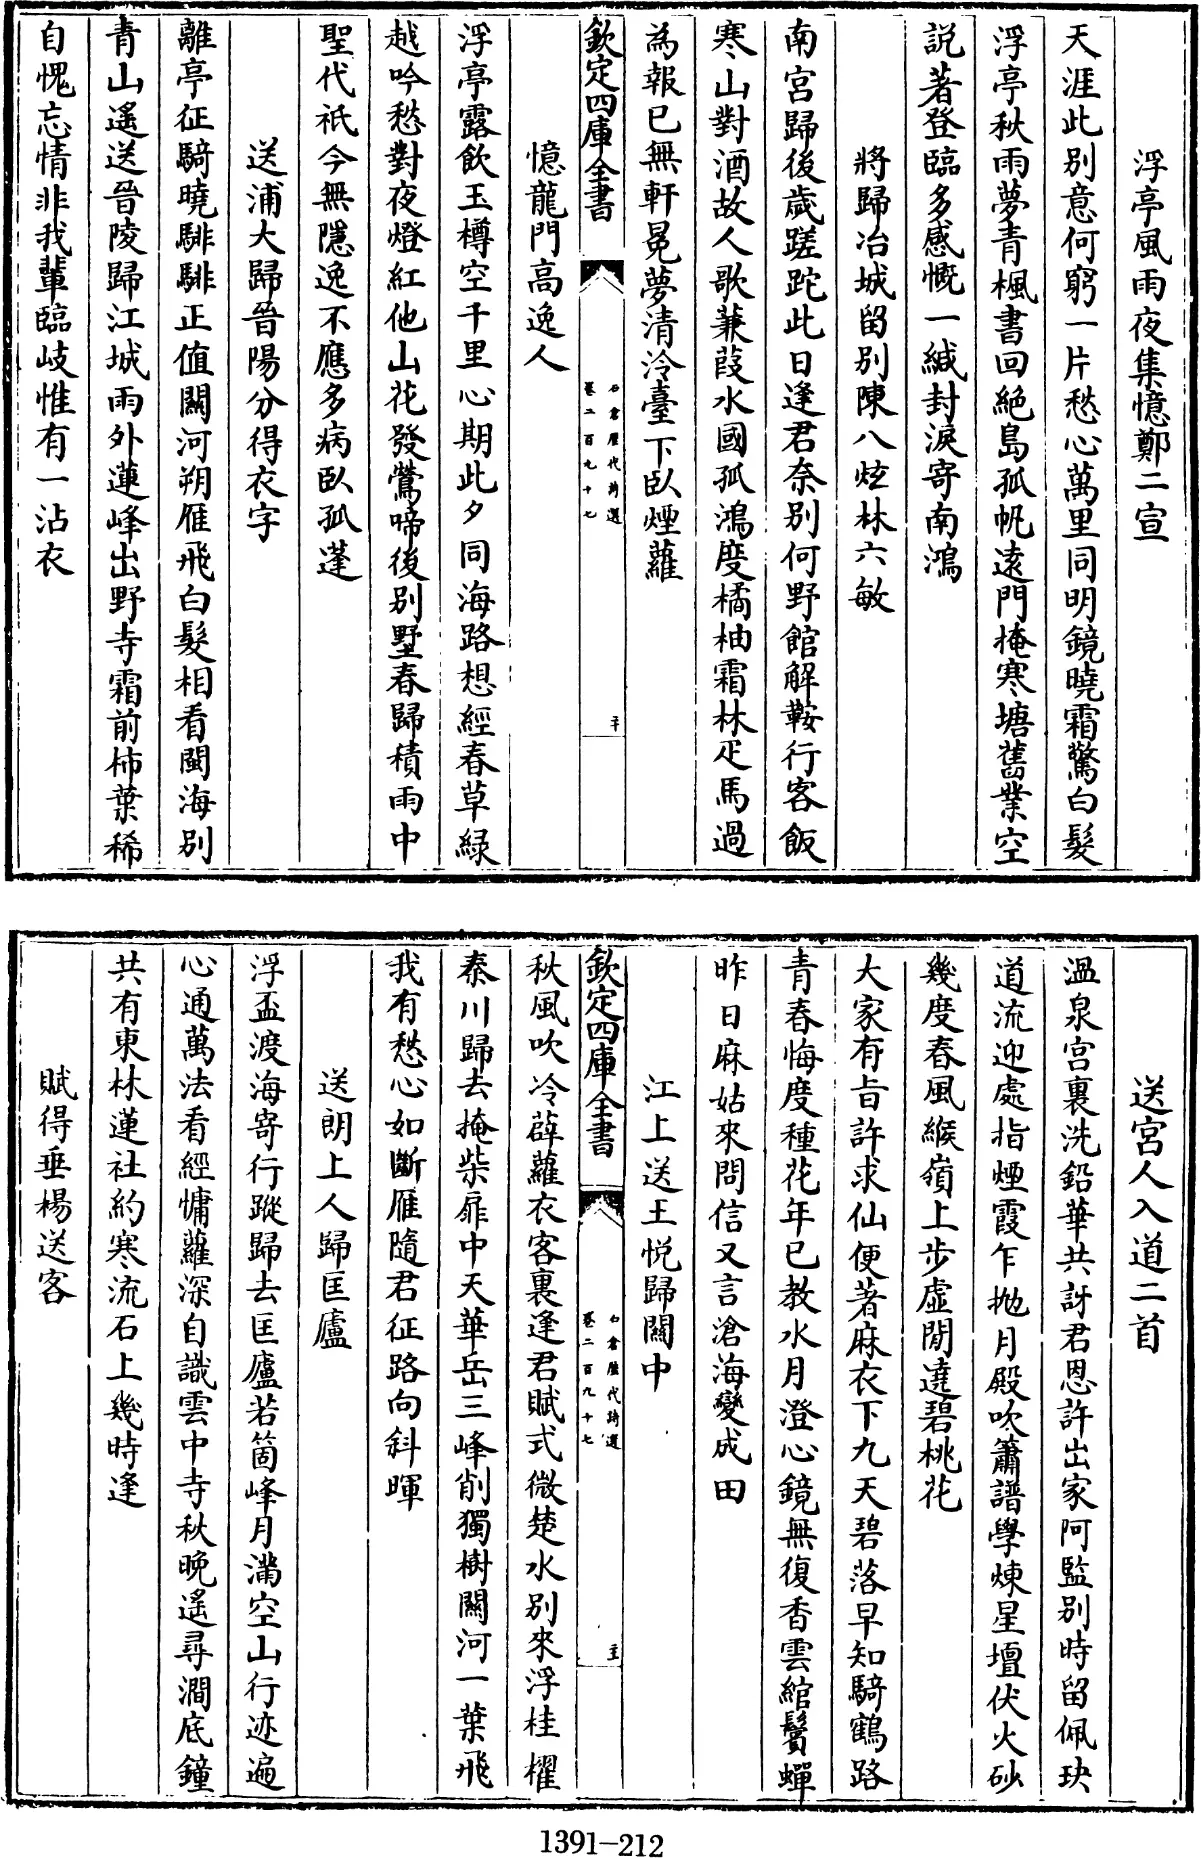 浮亭風雨夜集憶鄭二宣
天涯此别意何窮一片愁心萬里同明鏡曉霜驚白髮
浮亭秋雨夢青楓書回絶島孤帆遠門掩寒塘舊業空
説著登臨多感慨一緘封淚寄南鴻
將歸冶城留别陳八炫林六敏
南宫歸後歲蹉跎此日逢君奈别何野館解鞍行客飯
寒山對酒故人歌蒹葭水國孤鴻度橘柚霜林疋馬過
為報已無軒冕夢清泠臺下臥煙蘿
欽定四庫全書
石倉歷代詩選
卷二百九十七
二十
憶龍門高逸人
浮亭露飲玉樽空千里心期此夕同海路想經春草緑
越吟愁對夜燈紅他山花發鶯啼後别墅春歸積雨中
聖代祇今無隱逸不應多病臥孤蓬
送浦大歸晉陽分得衣字
離亭征騎曉騑騑正值關河朔雁飛白髮相看閩海别
青山遙送晉陵歸江城雨外蓮峰出野寺霜前柿葉稀
自愧忘情非我輩臨岐惟有一沾衣
送宮人入道二首
温泉宫裏洗鉛華共訝君恩許出家阿監别時留佩玦
道流迎處指煙霞乍抛月殿吹簫譜學煉星壇伏火砂
幾度春風緱嶺上步虚閒遶碧桃花
大家有旨許求仙便著麻衣下九天碧落早知騎鶴路
青春悔度種花年已教水月澄心鏡無復香雲綰鬢蟬
昨日麻姑來問信又言滄海變成田
江上送王悦歸關中
欽定四庫全書
石倉歷代詩選
卷二百九十七
主
秋風吹冷薜蘿衣客裏逢君賦式微楚水别來浮桂櫂
秦川歸去掩柴扉中天華岳三峰削獨樹關河一葉飛
我有愁心如斷雁隨君征路向斜暉
送朗上人歸匡廬
浮盃渡海寄行蹤歸去匡廬若箇峰月滿空山行迹遍
心通萬法看經慵蘿深自識雲中寺秋晚遙尋澗底鐘
共有東林蓮社約寒流石上幾時逢
賦得垂楊送客
1391-212